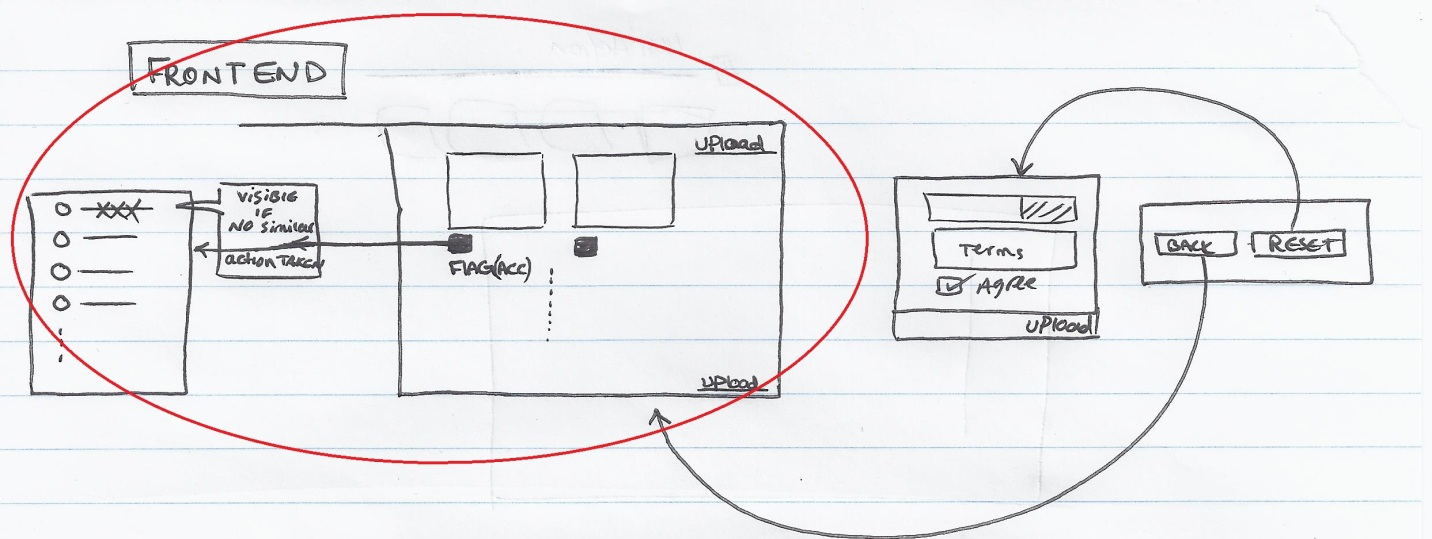 FRONTEND
Upload
VISIBLE
IF
NO Similar
action TAKEN
XXX
FLAG(ACC)
Upload
Terms
AGREE
UPload
BACK
RESET